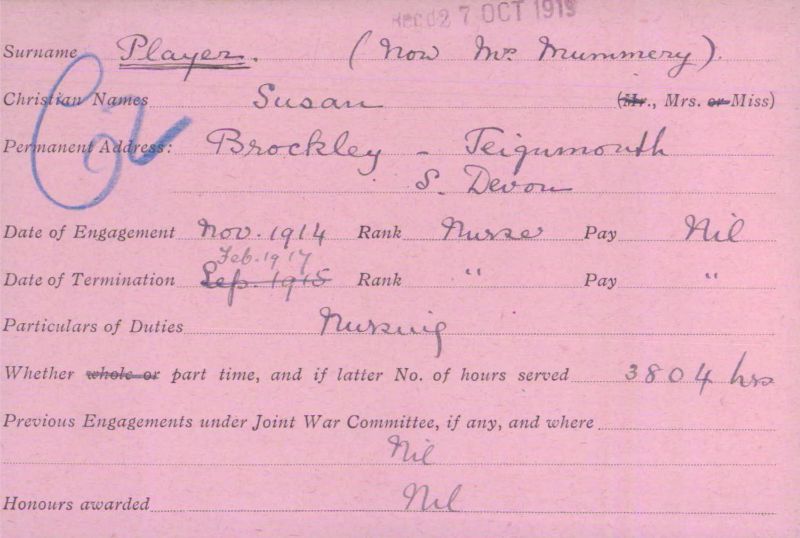 Recd 27 OCT 1919
Surname Player. (Now Mrs Mummery).
Christian Names Susan (Mr., Mrs. or Miss)
Permanent Address: Brockley - Teignmouth
S. Devon
Date of Engagement Nov. 1914 Rank Nurse Pay Nil
Feb. 1917
Date of Termination Sep. 1915 Rank " Pay "
Particulars of Duties Nursing
Whether whole or part time, and if latter No. of hours served 3804 hrs
Previous Engagements under Joint War Committee, if any, and where
Nil
Honours awarded Nil